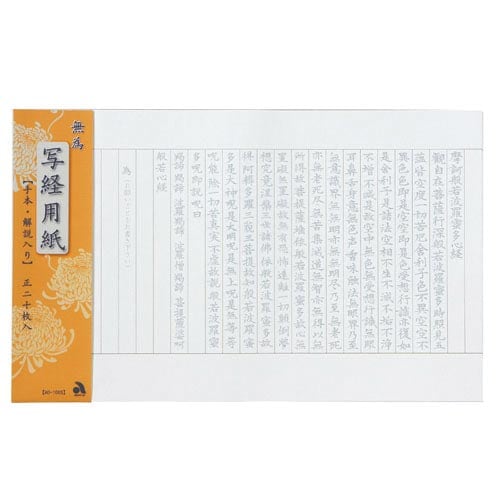 無為
写経用紙
【手本・解説入り】 正二十枚入
摩訶般若波羅蜜多心経
観自在菩薩行深般若波羅蜜多時照見五
蘊皆空度一切苦厄舎利子色不異空空不
異色色即是空空即是色受想行識亦復如
是舎利子是諸法空相不生不滅不垢不浄
不増不減是故空中無色無受想行識無眼
耳鼻舌身意無色声香味触法無眼界乃至
無意識界無無明亦無無明尽乃至無老死
亦無老死尽無苦集滅道無智亦無得以無
所得故菩提薩埵依般若波羅蜜多故心無
罣礙無罣礙故無有恐怖遠離一切顛倒夢
想究竟涅槃三世諸仏依般若波羅蜜多故
得阿耨多羅三藐三菩提故知般若波羅蜜
多是大神呪是大明呪是無上呪是無等等
呪能除一切苦真実不虚故説般若波羅蜜
多呪即説呪曰
羯諦 羯諦 波羅羯諦 波羅僧羯諦 菩提薩婆訶
般若心経
為